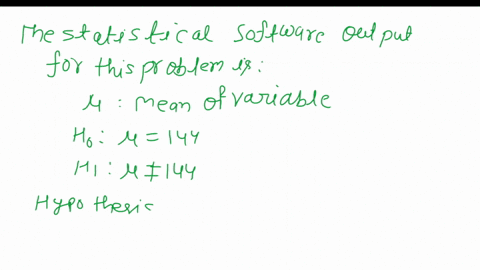 The statistical software output
for this problem is:
μ : mean of variable
H₀ : μ = 144
H₁ : μ ≠ 144
Hypothesis